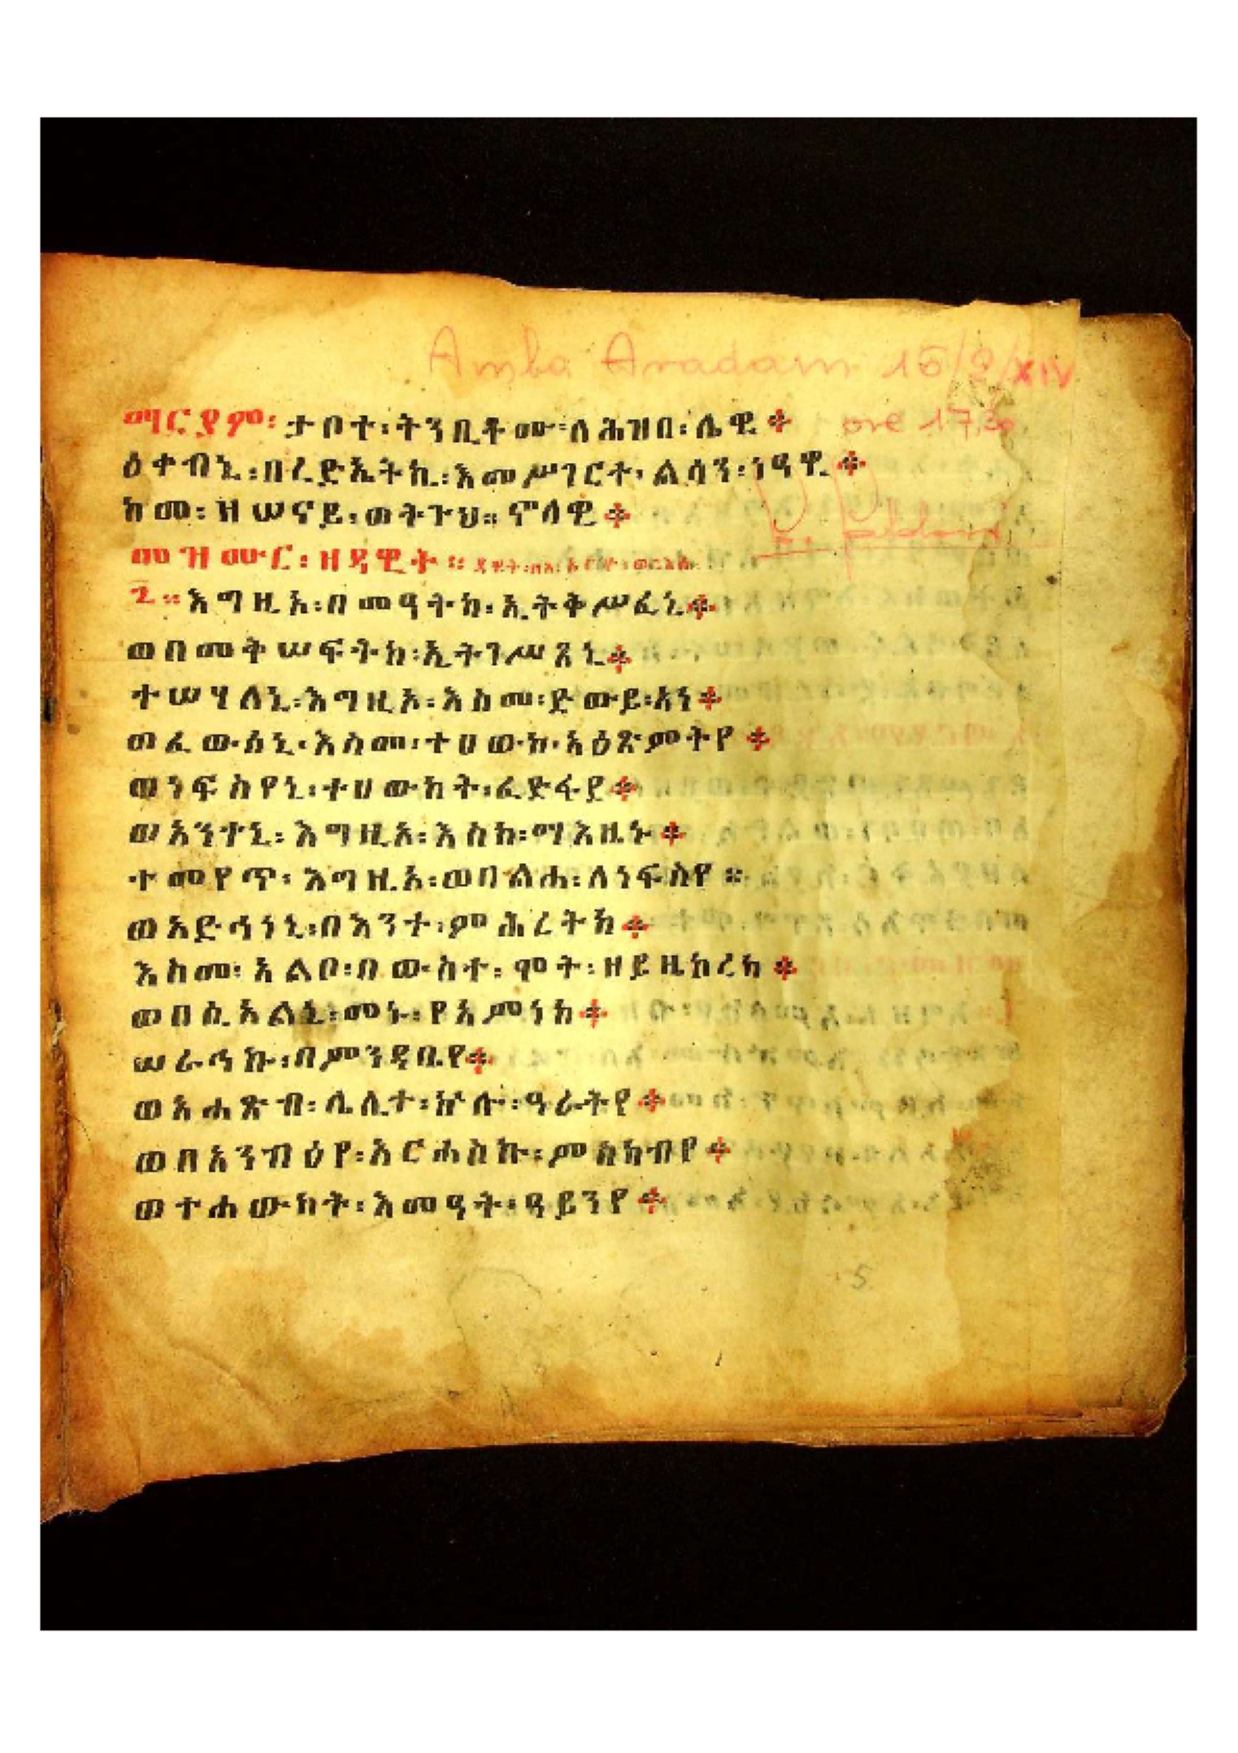 Amba Aradam 15/2/XIV
ማርያም፡ ታቦተ፡ትንቢቶሙ፡ለሕዝበ፡ሌዊ ፨ ore 17,30
ዕቀብኒ፡በረድኤትኪ፡እመሥገርተ፡ልሳን፡ነዓዊ ፨
ከመ፡ ዝ ሠናይ፡ወትጉህ። ኖላዊ ፨
መዝሙር፡ ዘዳዊት ።
፮። እግዚአ፡በመዓትከ፡ኢትቅሥፈኒ ፨
ወበመቅሠፍትከ፡ኢትገሥጸኒ ፨
ተሠሃለኒ፡እግዚኦ፡እስመ፡ድውይ፡አነ ፨
ወፈውሰኒ፡እስመ፡ተሀውከ፡አዕጽምትየ ፨
ወነፍስየኒ፡ተሀውከት፡ፈድፋደ ፨
ወአንተኒ፡ እግዚአ፡ እስከ፡ማእዜኑ ፨
ተመየጥ፡ እግዚአ፡ወባልሐ፡ለነፍስየ ።
ወአድኅነኒ፡በእንተ፡ምሕረትከ ፨
እስመ፡ አልቦ፡በውስተ፡ ሞት፡ ዘይዜከረከ ፨
ወበሲኦልኒ፡መኑ፡የአምነከ ፨
ሠራኅኩ፡በምንዳቤየ ፨
ወአሐጽብ፡ ሌሊተ፡ኵሎ፡ ዓራትየ ፨
ወበአንብዕየ፡አርሐስኩ፡ምስካብየ ፨
ወተሐውከት፡እመዓት፡ዓይንየ ፨
5